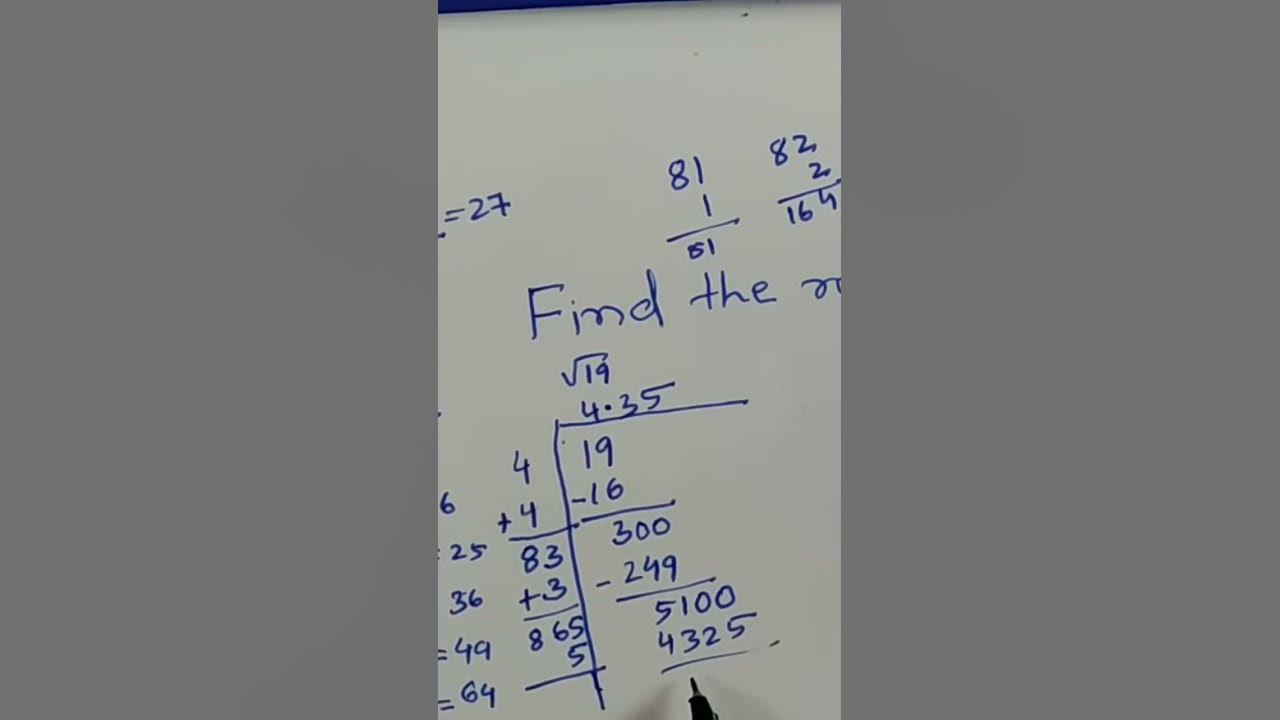 =27
81
1
81
82
2
164
Find the
√19
4.35
4
19
+4
-16
83
300
+3
-249
865
5100
5
4325
6
25
36
=49
=64